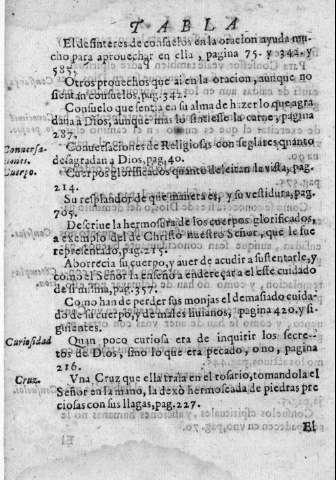 TABLA
El desinteres de consuelos en la oracion ayuda mu-
cho para aprouechar en ella, pagina 75. y 342. y
585.
Otros prouechos que ai en la oracion, aunque no
sientan consuelos, pag. 342.
Consuelo que sentia en su alma de hazer lo que agra
daua a Dios, aunque mas lo sintiesse la carne, pagina
287.
Conuersa-
ciones.
Conuersaciones de Religiosas con seglares quanto
desagradan a Dios, pag. 40.
Cuerpo.
Cuerpos glorificados quanto deleitan la vista, pag.
214.
Su resplandor, de que manera es, y su vestidura, pag.
705.
Descriue la hermosura de los cuerpos glorificados,
a exemplo del de Christo nuestro Señor, que le fue
representado, pag. 215.
Aborrecia su cuerpo, y auer de acudir a sustentarle, y
como el Señor la enseño a endereçar a el este cuidado
de si misma, pag. 357.
Como han de perder sus monjas el demasiado cuida-
do de su cuerpo, y de males liuianos, pagina 420. y si-
guientes.
Curiosidad
Quan poco curiosa era de inquirir los secre-
tos de Dios, sino lo que era pecado, o no, pagina
216.
Cruz.
Vna Cruz que ella traia en el rosario, tomandola el
Señor en la mano, la dexò hermoseada de piedras pre
ciosas con sus llagas, pag. 227.
El